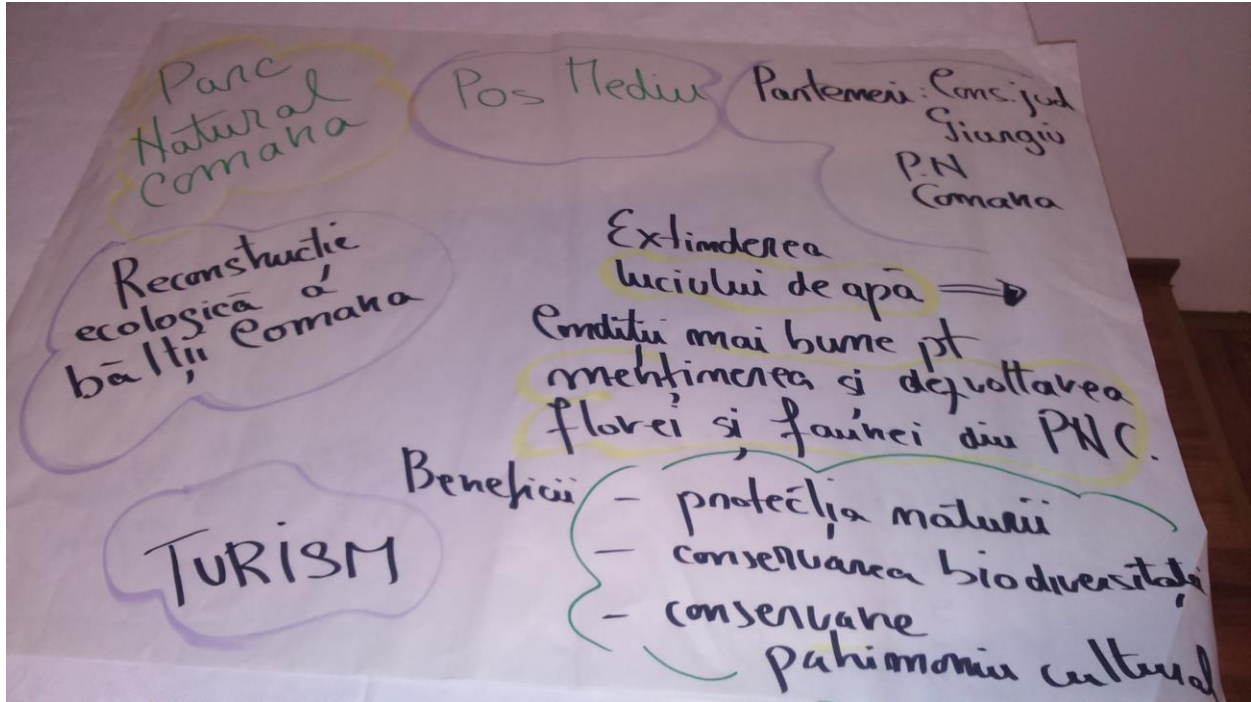 Parc
Natural
Comana
Pos Mediu
Parteneri: Cons. jud
Giurgiu
P.N
Comana
Reconstructie
ecologică a
bălții Comana
Extinderea
luciului de apă ⇒
Conditii mai bune pt
menținerea și dezvoltarea
florei și faunei din PNC.
Beneficii
- protecția naturii
- conservarea biodiversității
- conservare
patrimoniu cultural
TURISM